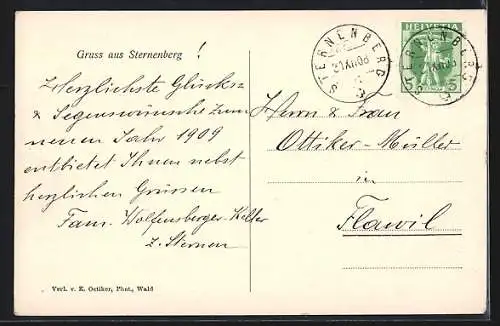 Gruss aus Sternenberg !
Herzlichste Glücks-
& Segenswünsche zum
neuen Jahr 1909
entbietet Ihnen nebst
herzlichen Grüssen
Fam. Wolfensberger-Keller
z. Sternen
Verl. v. E. Oetiker, Phot., Wald
STERNENBERG
31.XII.08
HELVETIA
5
STERNENBERG
Herrn & Frau
Ottiker-Müller
in
Flawil